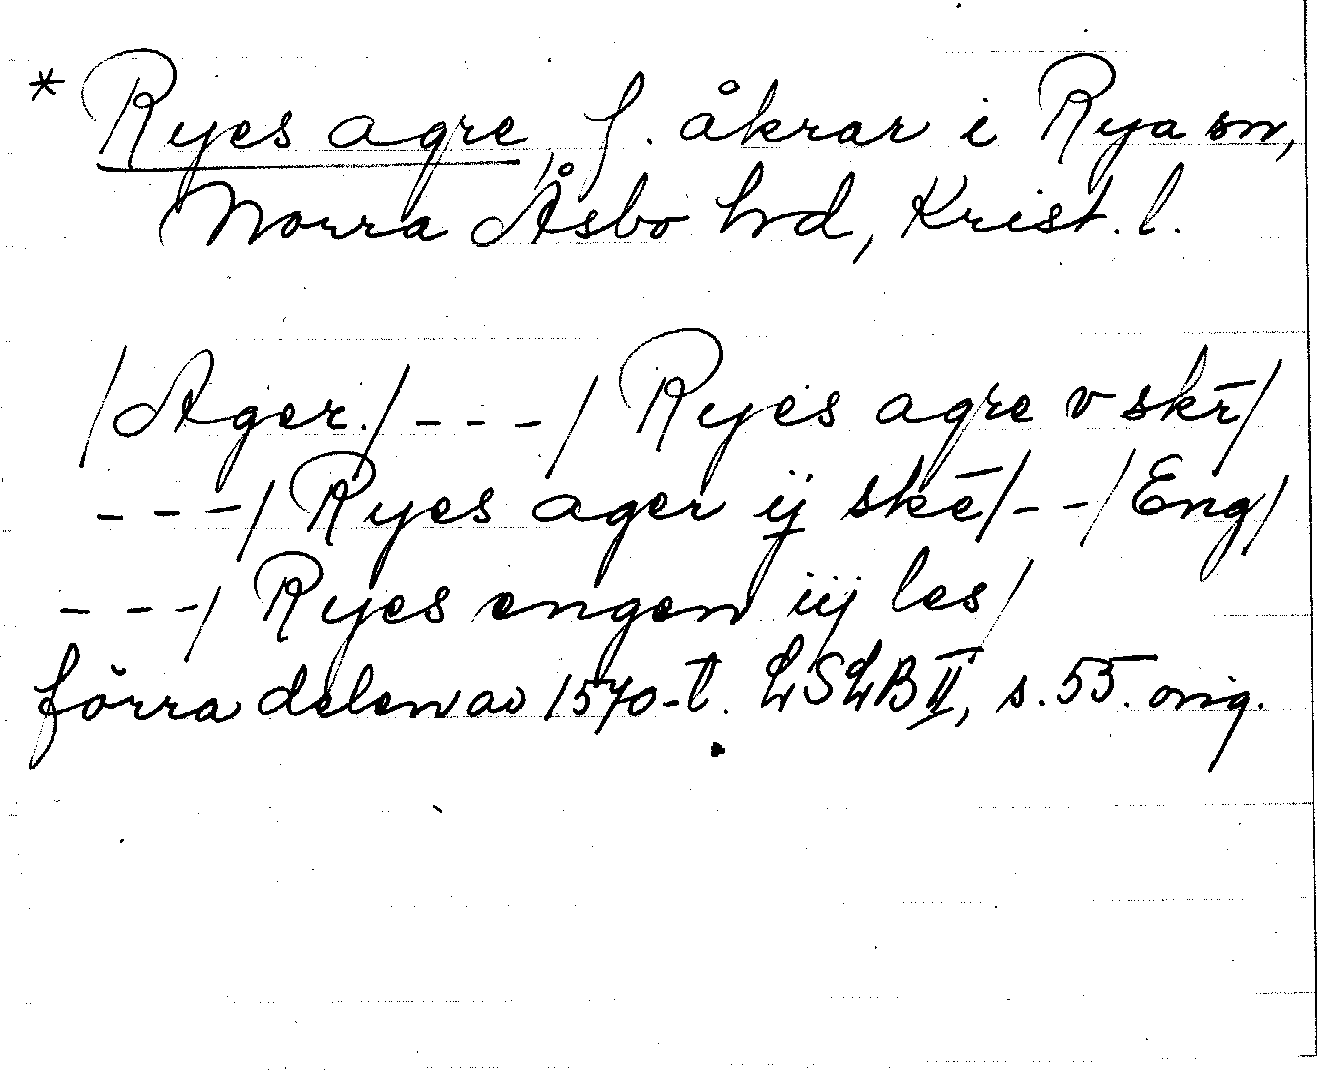 * Ryes agre, f. åkrar i Rya sn,
Norra Åsbo hd, Krist. l.
/Ager./ - - - / Ryes agre v skr̄/
- - - / Ryes ager ij skē/ - - /Eng/
- - - / Ryes engen iij les/
förra delen av 1570-t. LSLB II, s. 55. orig.